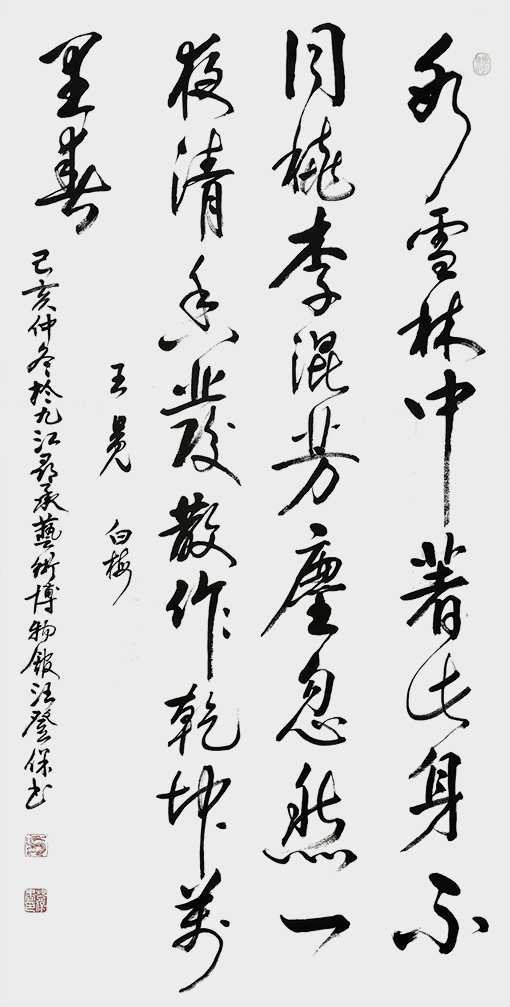 冰雪林中著此身不
同桃李混芳塵忽然一
夜清香發散作乾坤萬
里春
王冕 白梅
己亥仲冬於九江尋承藝術博物館汪登保书